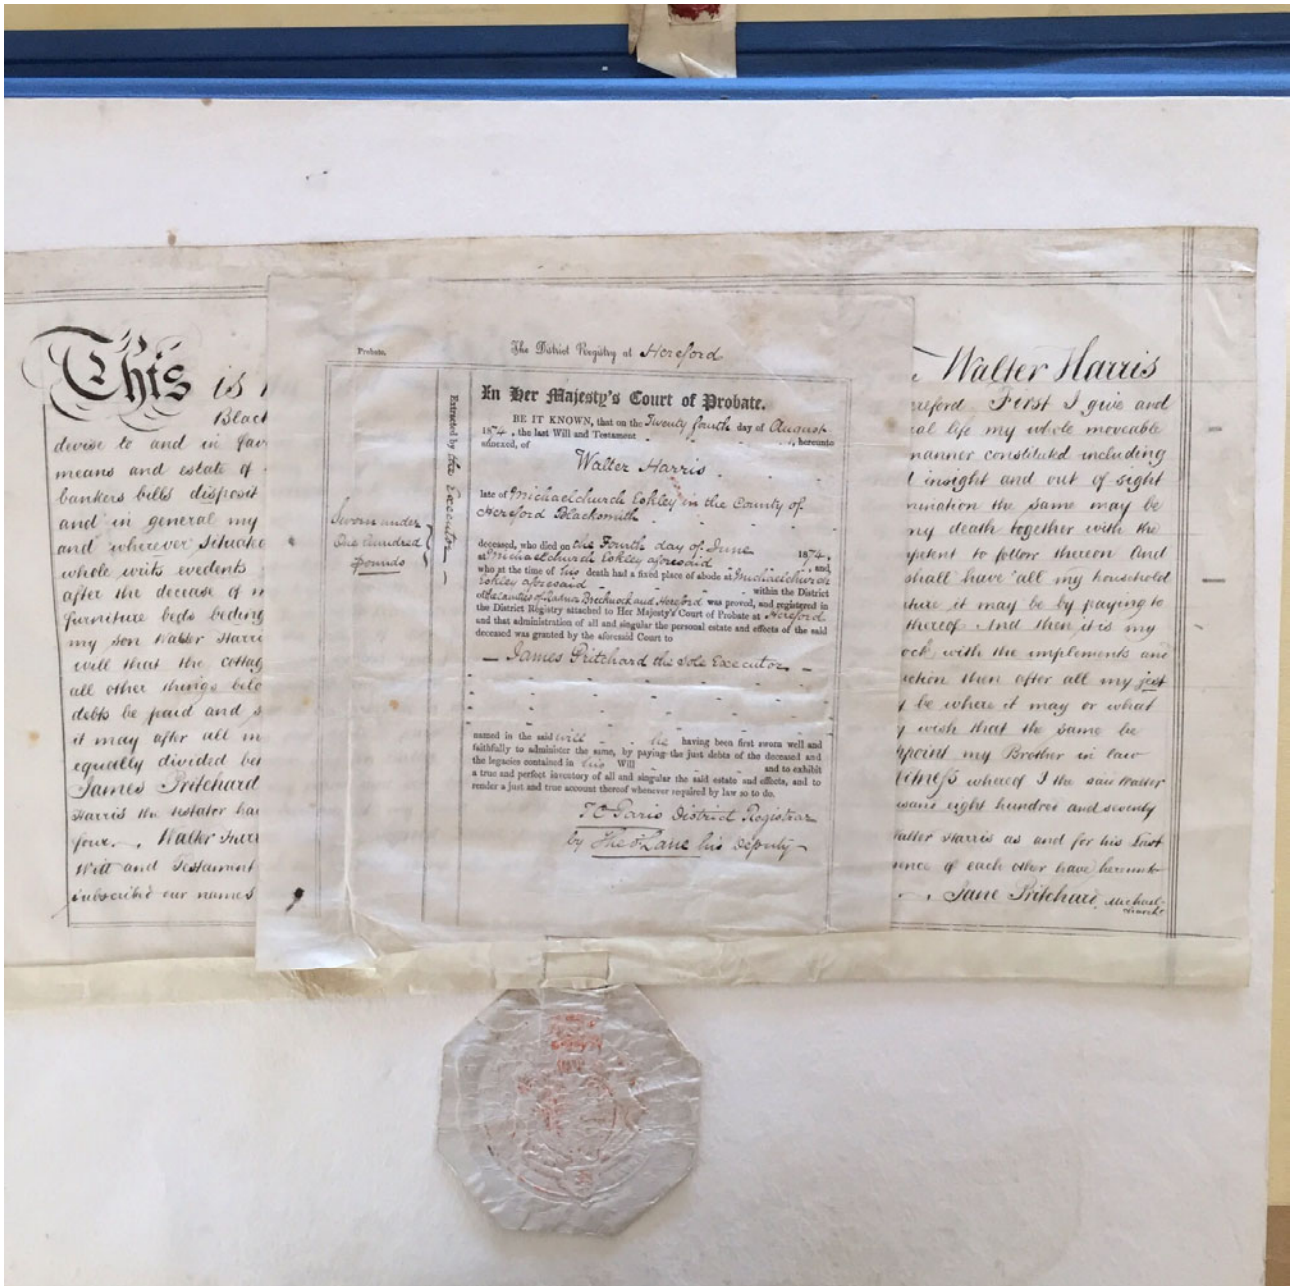 This is
Black
devise to and in fav
means and estate of
bankers bills disposit
and in general my
and wherever situate
whole writs evedents
after the decease of
furniture beds beding
my son Walter Harri
will that the cottag
all other things belo
debts be paid and s
it may after all m
equally divided be
James Pritchard
Harris the testator ha
four. Walter Harr
Will and Testament
subscribed our names
Probate.
The District Registry at Hereford
Sworn under
One Hundred
Pounds
Extracted by the Executor
In Her Majesty's Court of Probate.
BE IT KNOWN, that on the Twenty fourth day of August
1874, the last Will and Testament , hereunto
annexed, of
Walter Harris
late of Michaelchurch Eskley in the County of
Hereford Blacksmith
deceased, who died on the Fourth day of June 1874,
at Michaelchurch Eskley aforesaid , and,
who at the time of his death had a fixed place of abode at Michaelchurch
Eskley aforesaid within the District
of the counties of Radnor Brecknock and Hereford was proved, and registered in
the District Registry attached to Her Majesty's Court of Probate at Hereford
and that administration of all and singular the personal estate and effects of the said
deceased was granted by the aforesaid Court to
James Pritchard the sole Executor
named in the said will he having been first sworn well and
faithfully to administer the same, by paying the just debts of the deceased and
the legacies contained in his Will and to exhibit
a true and perfect inventory of all and singular the said estate and effects, and to
render a just and true account thereof whenever required by law so to do.
District Registrar
by Lane his deputy
Walter Harris
ereford First I give and
al life my whole moveable
manner constituted including
insight and out of sight
mination the same may be
my death together with the
mpetent to follow thereon And
shall have all my household
ture it may be by paying to
thereof And then it is my
ock with the implements and
uction then after all my just
be where it may or what
y wish that the same be
appoint my Brother in law
Witness whereof I the said Walter
usand eight hundred and seventy
Walter Harris as and for his Last
sence of each other have hereunto
Jane Pritchard, Michael-
church